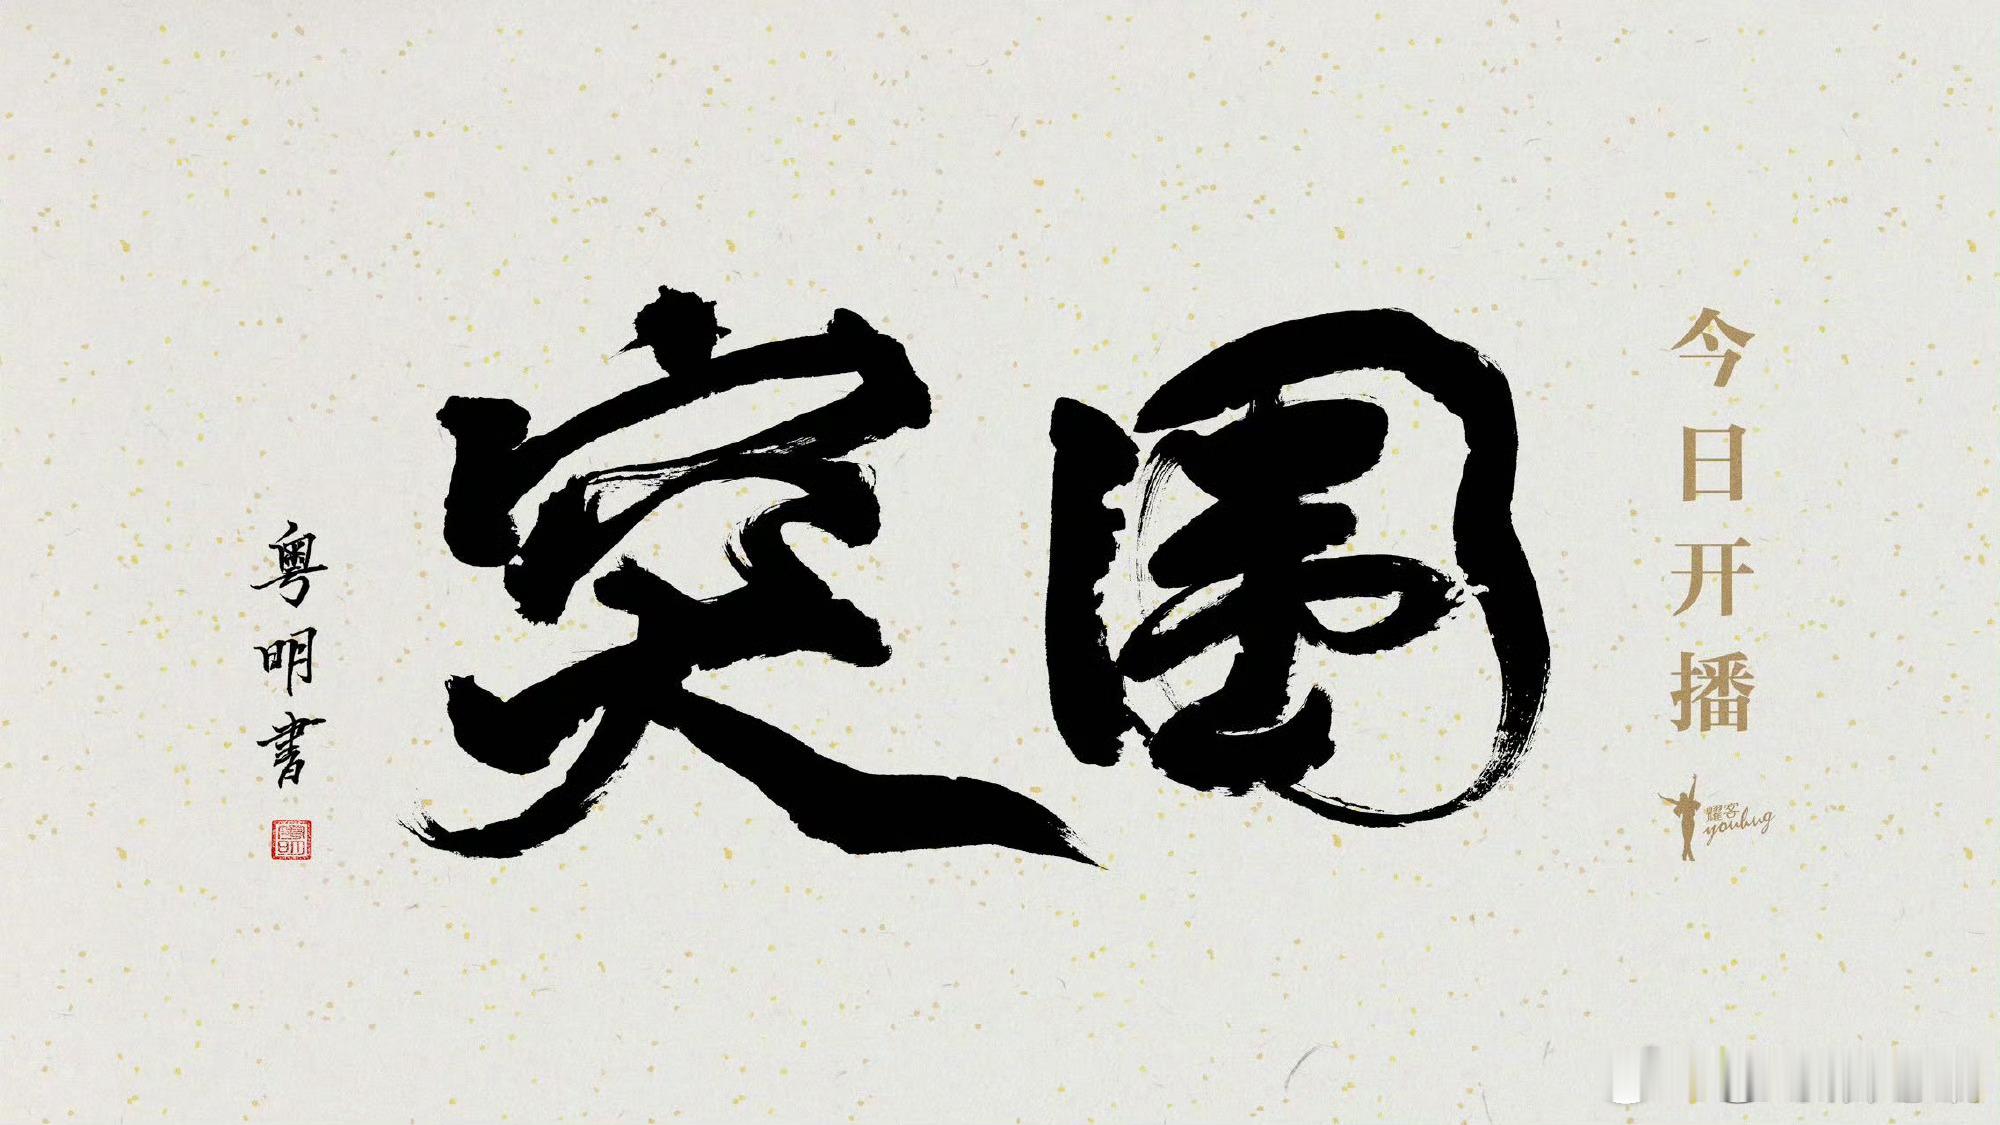 今日开播
耀客
youhug
突围
粤明書